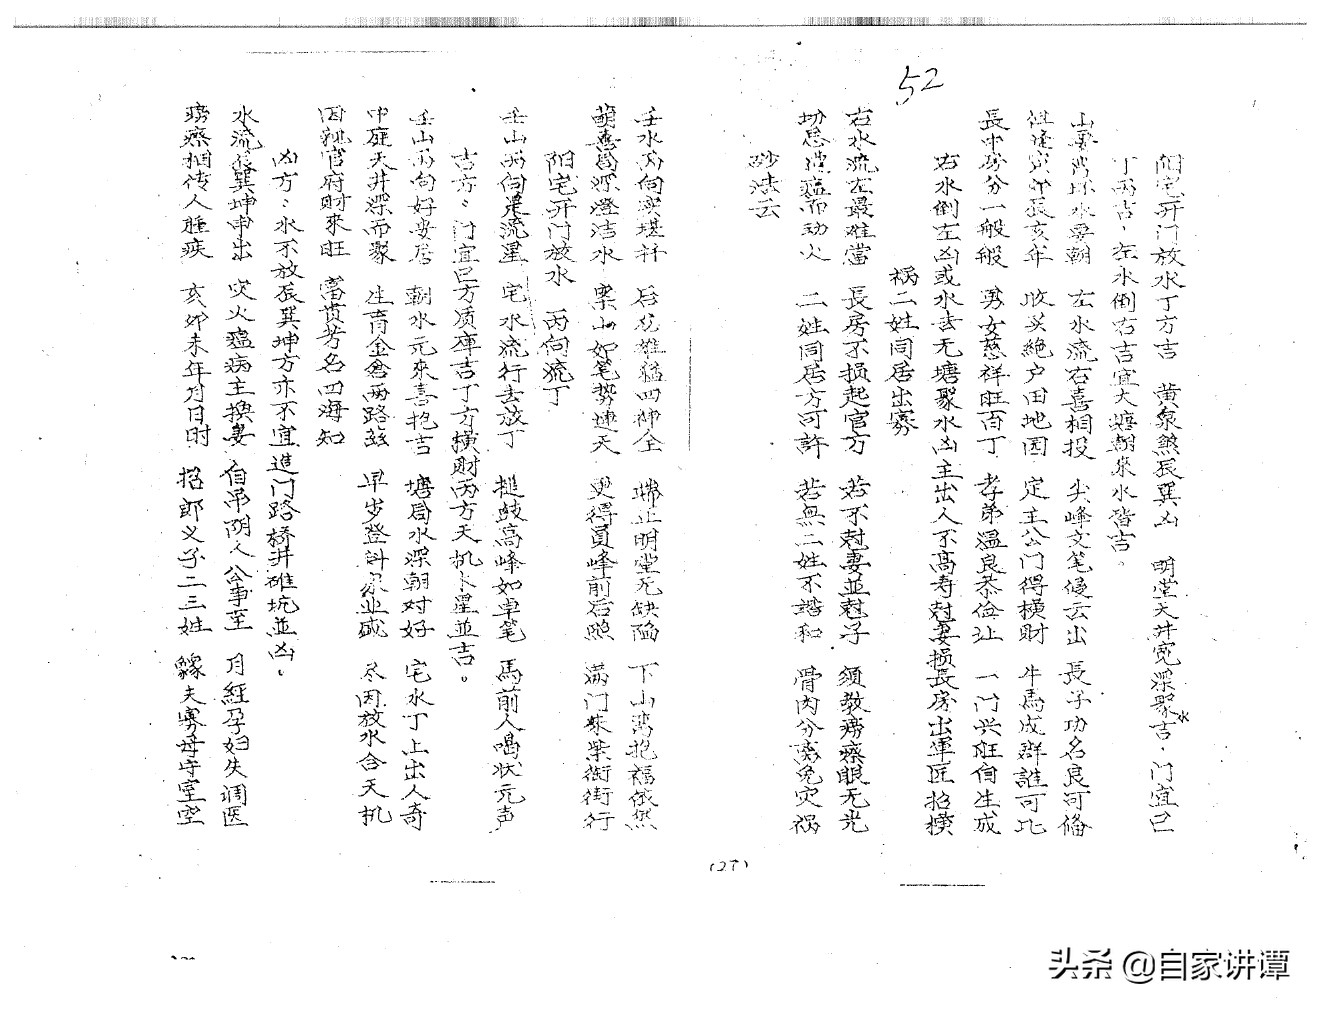 52
阳宅开门放水丁方吉 黄泉煞辰巽凶 明堂天井宽深聚吉．门宜巳
丁丙吉，左水倒右吉宜大塘朝來水皆吉。
山要湾环水要朝 左水流右喜相投 尖峰文笔侵云出 長子功名良可俻
辰亥年 收英絶户田地園 定主公门得横財 牛馬成群誰可比
長中房分一般般 男女慈祥旺百丁 孝弟温良恭俭让 一门兴旺自生成
右水倒左凶或水去无塘聚水凶主出人不高寿尅妻損長房出軍匠招横
禍二姓同居出寡
右水流左最难當 長房不损起官方 若不尅妻並尅子 须教痨瘵眼无光
二姓同居方可許 若無二姓不諧和 骨肉分离免灾祸
砂法云
壬水丙向实堪扦 后龙雄猛四神全 端正明堂无缺陷 下山湾抱福依然
深澄洁水 案山如笔势連天 更得員峰前后照 满门朱紫街街行
阳宅开门放水 丙向流丁
壬山丙向是流星 宅水流行去放丁 槌鼓高峰如卓笔 馬前人喝状元声
吉方：门宜巳方质庫吉丁方横財丙方天机木星並吉。
壬山丙向好安居 朝水元來喜抱吉 塘局水深朝对好 宅水丁上出人奇
中庭天井深而聚 生育金倉两路 早步登科家业盛 尽因放水合天机
因親官府財來旺 富贵芳名四海知
凶方：水不放辰巽坤方亦不宜造门路橋井碓坑並凶。
水流辰巽坤申出 灾火瘟病主换妻 自吊阴人公事至 月經孕妇失调医
痨瘵相传人腫疾 亥卯未年月日时 招郎义子二三姓 鰥夫寡母守空
(27)
头条 @自家讲谭